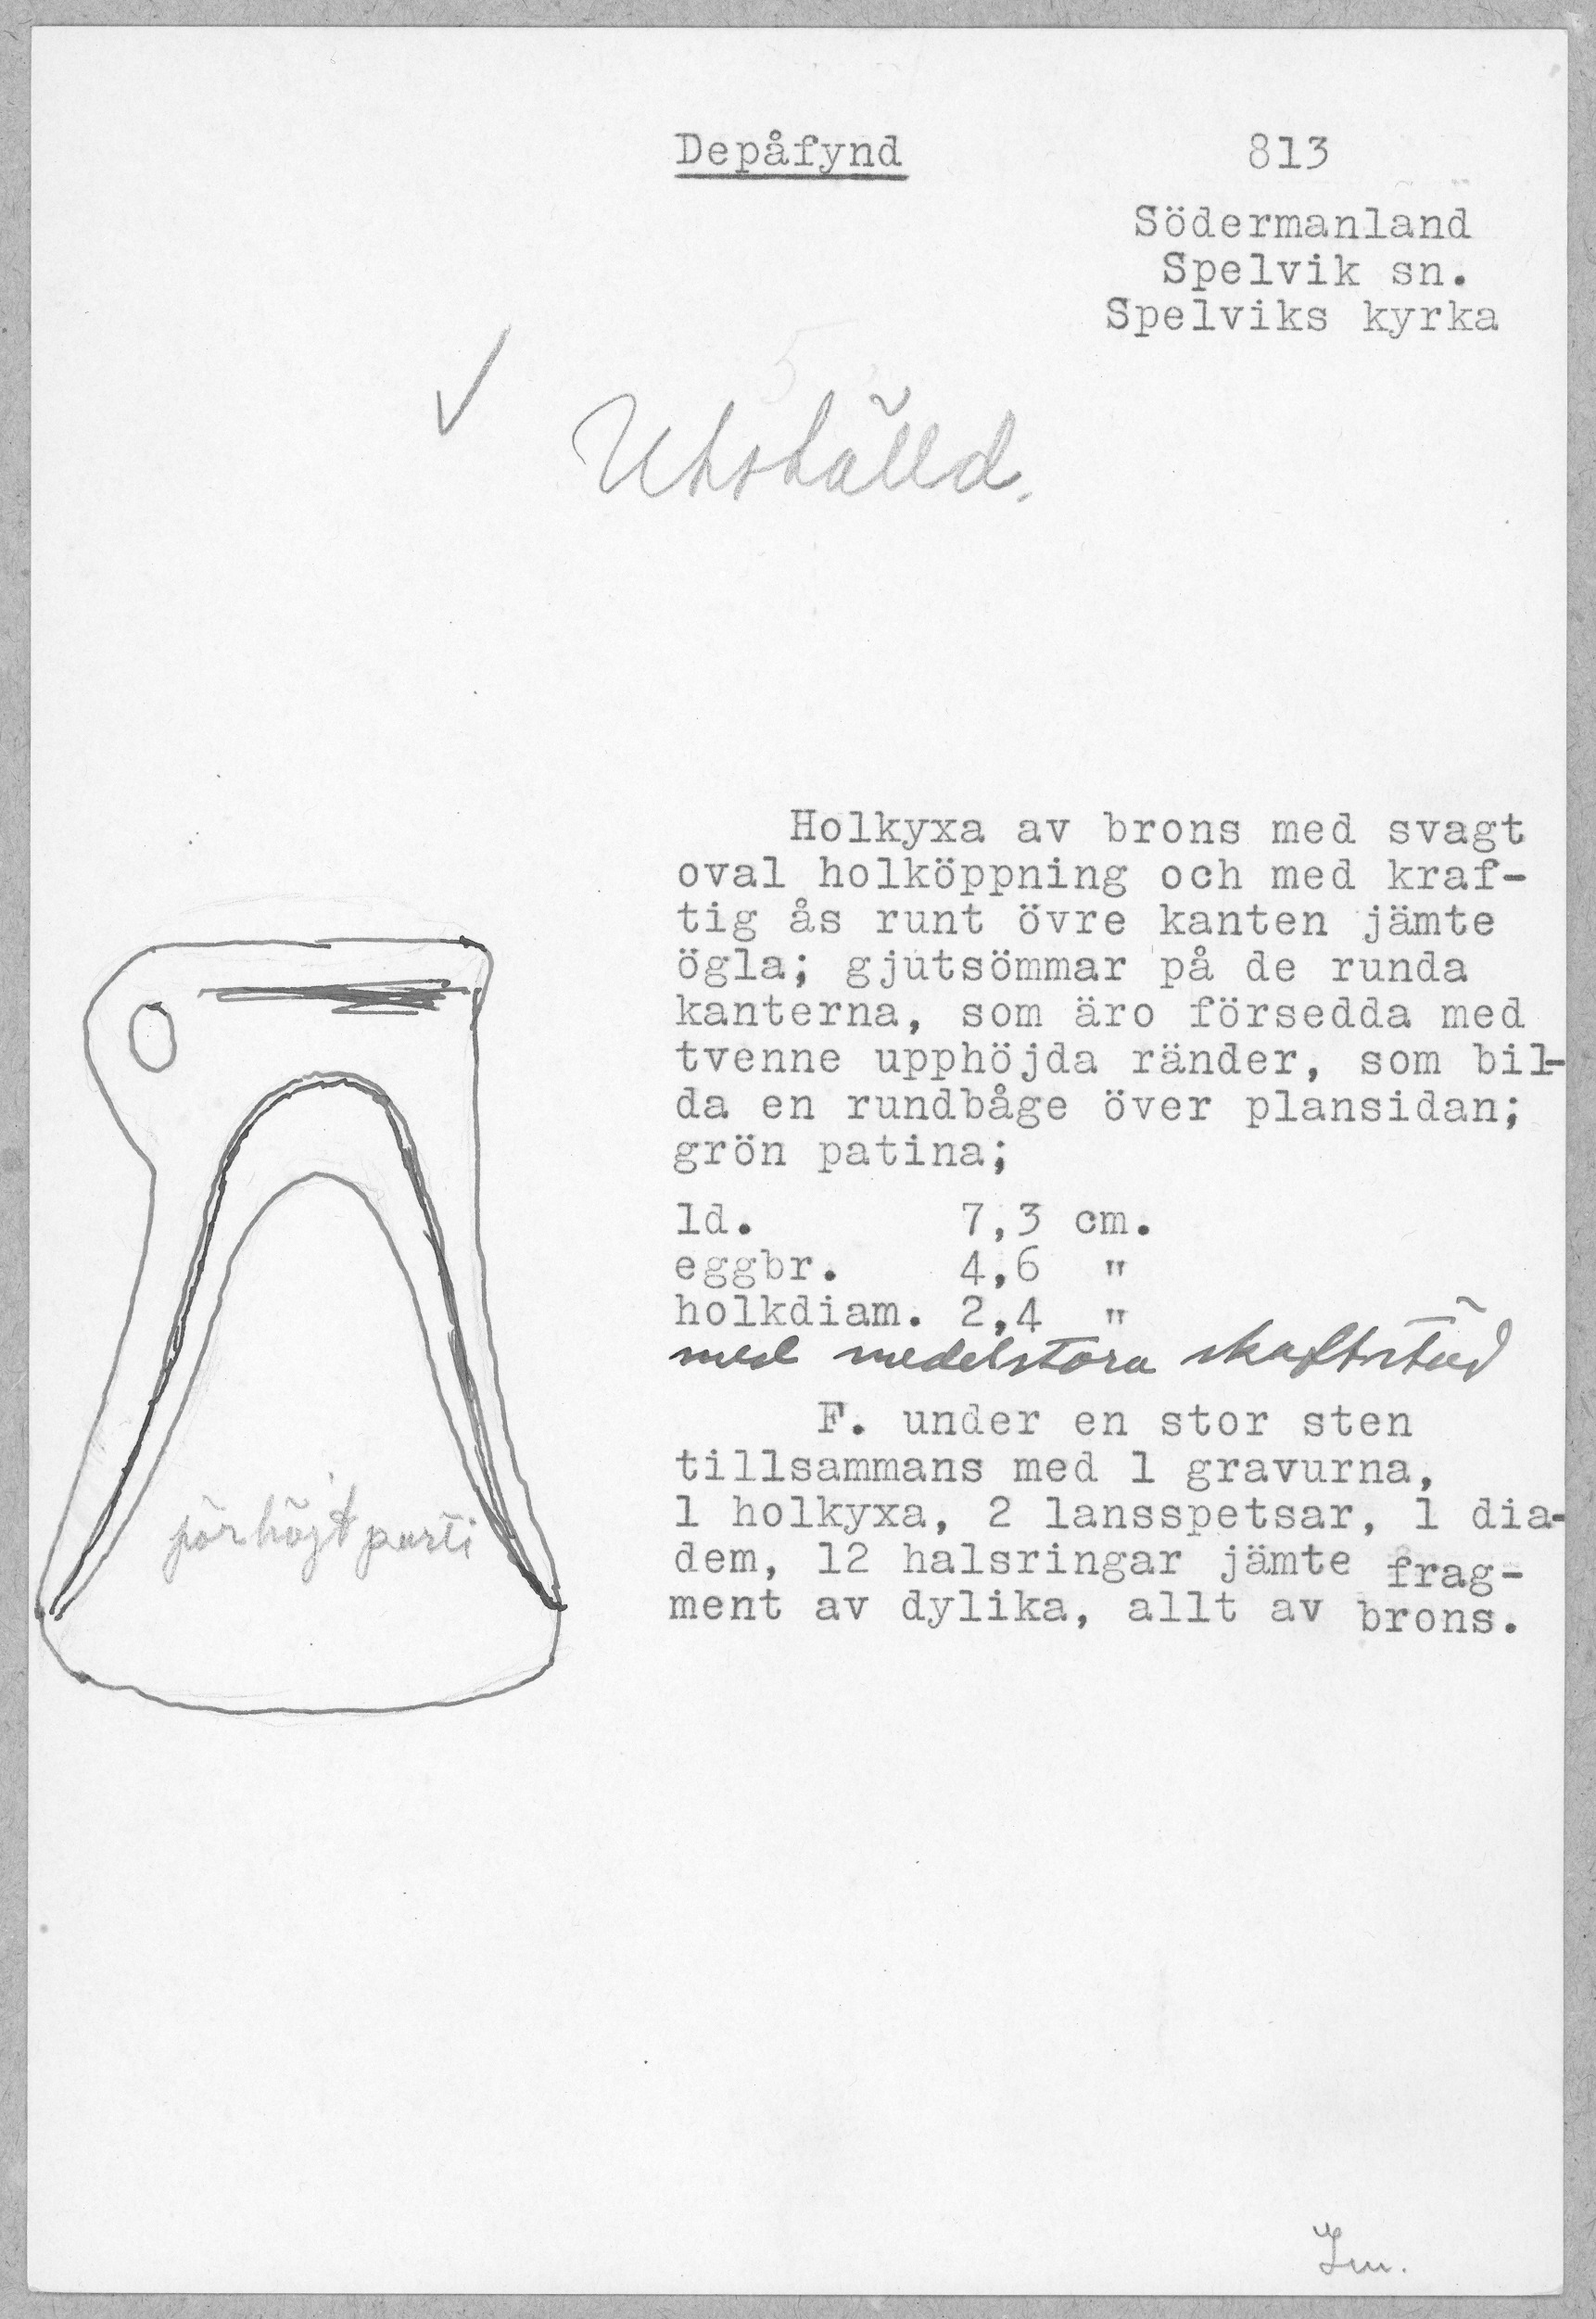 Depåfynd 813
Södermanland
Spelvik sn.
Spelviks kyrka
Utställd.
Holkyxa av brons med svagt
oval holköppning och med kraf-
tig ås runt övre kanten jämte
ögla; gjutsömmar på de runda
kanterna, som äro försedda med
tvenne upphöjda ränder, som bil-
da en rundbåge över plansidan;
grön patina;
ld. 7,3 cm.
eggbr. 4,6 "
holkdiam. 2,4 "
med medelstora skaftstöd
F. under en stor sten
tillsammans med 1 gravurna,
1 holkyxa, 2 lansspetsar, 1 dia-
dem, 12 halsringar jämte frag-
ment av dylika, allt av brons.
förhöjt parti